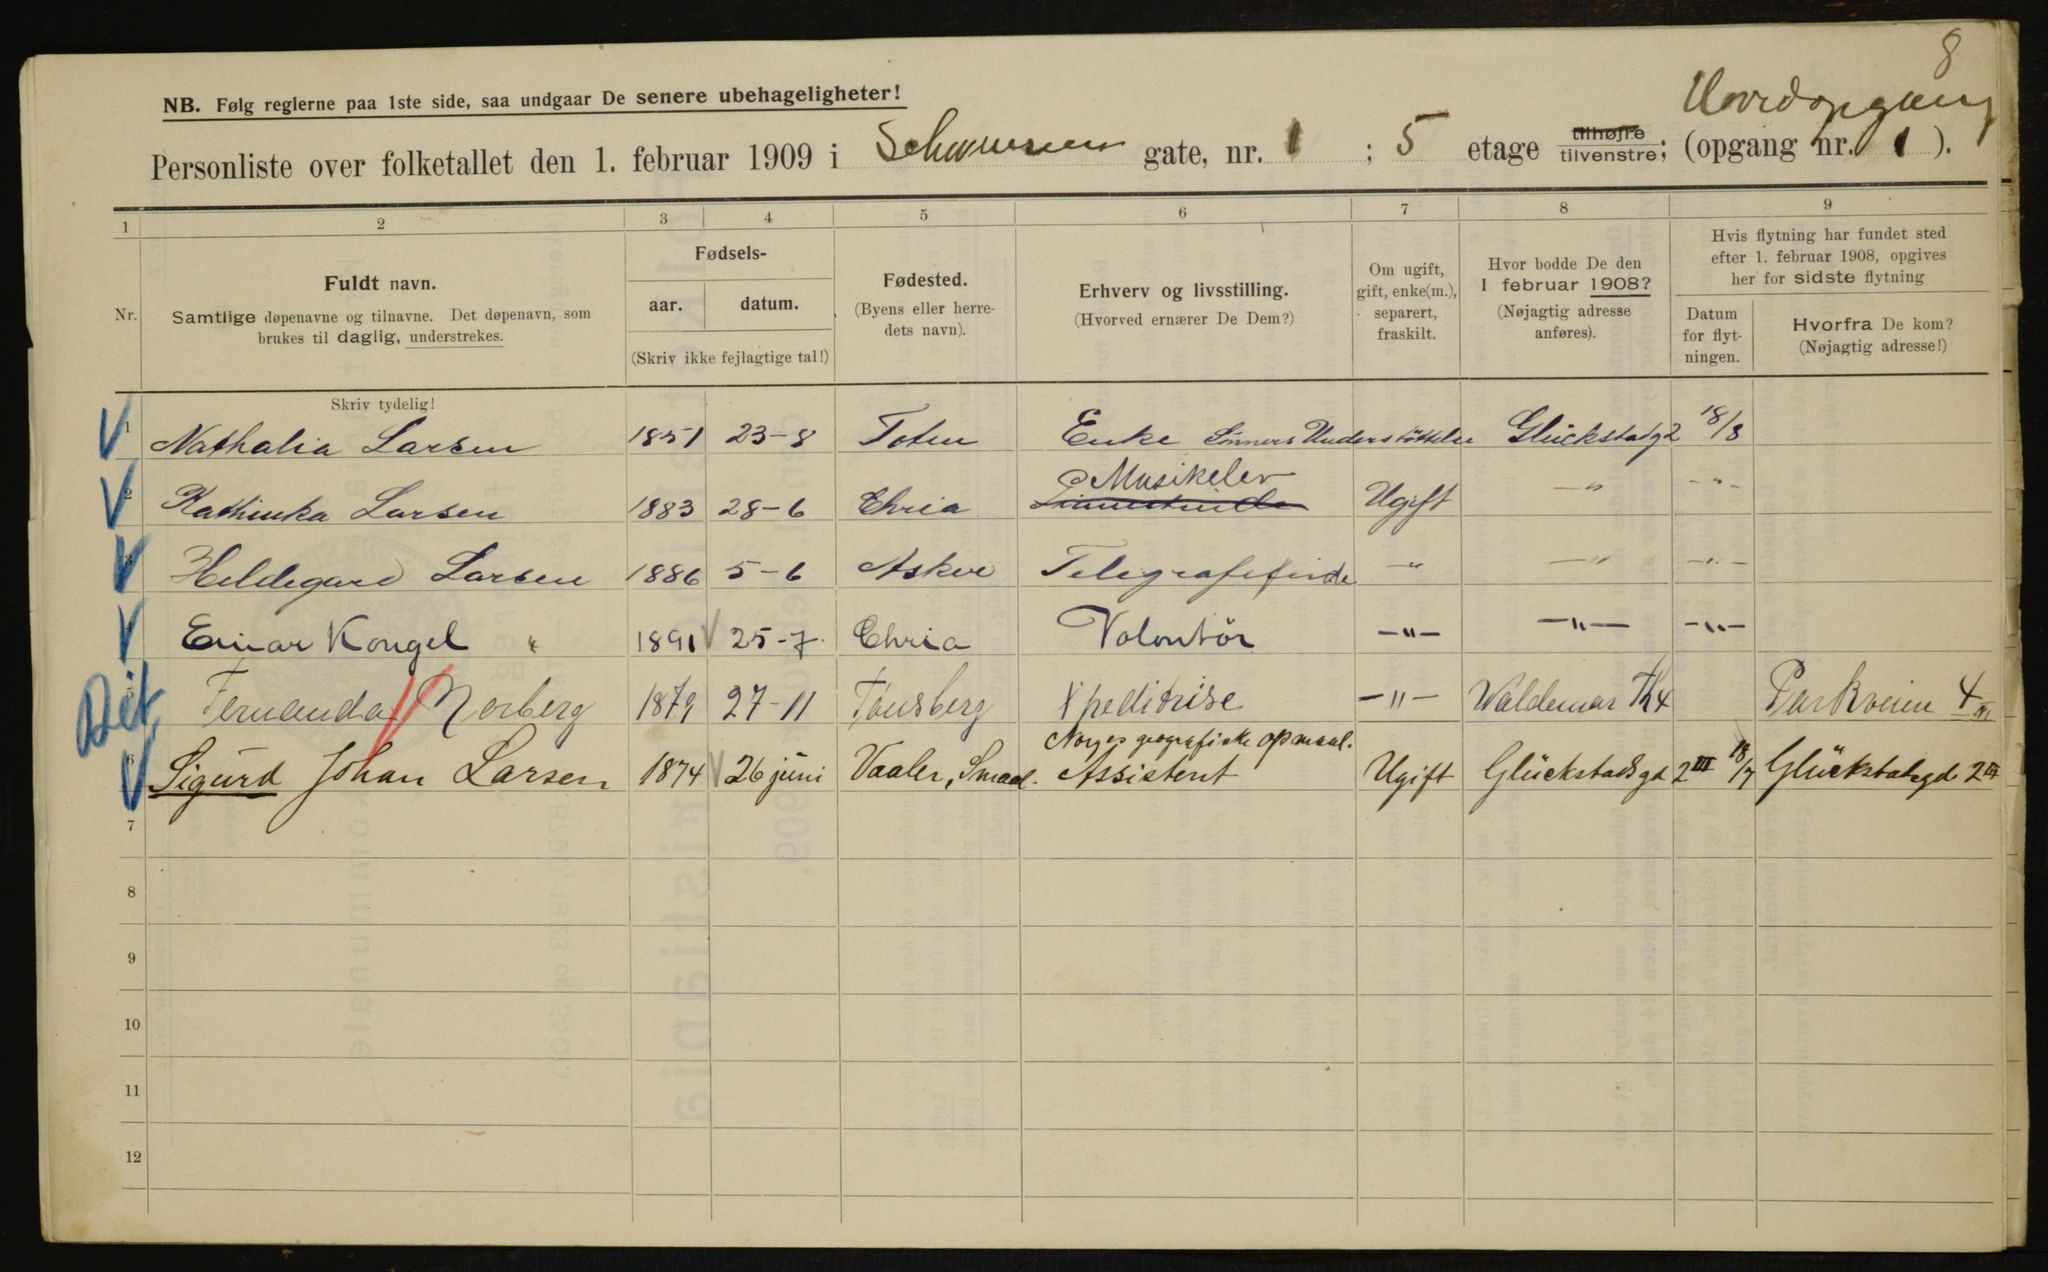 8
NB. Følg reglerne paa 1ste side, saa undgaar De senere ubehageligheter!
Hovedopgang
Personliste over folketallet den 1. februar 1909 i Schwensens gate, nr. 1 ; 5 etage tilhøjre tilvenstre; (opgang nr. 1 ).
1 2 3 4 5 6 7 8 9
Nr.
Fuldt navn.
Samtlige døpenavne og tilnavne. Det døpenavn, som
brukes til daglig, understrekes.
Fødsels-
aar. datum.
(Skriv ikke fejlagtige tal!)
Fødested.
(Byens eller herre-
dets navn).
Erhverv og livsstilling.
(Hvorved ernærer De Dem?)
Om ugift,
gift, enke(m.),
separert,
fraskilt.
Hvor bodde De den
1 februar 1908?
(Nøjagtig adresse
anføres).
Hvis flytning har fundet sted
efter 1. februar 1908, opgives
her for sidste flytning
Datum
for flyt-
ningen.
Hvorfra De kom?
(Nøjagtig adresse!)
Skriv tydelig!
1 Nathalia Larsen 1851 23-8 Toten Enke Sönners Understöttelse Glückstadgd 2 18/8
Musikelev
2 Kathinka Larsen 1883 28-6 Chria Ugift -"- -"-
3 Hildegard Larsen 1886 5-6 Asker Telegrafistinde -"- -"- -"-
Einar Kongel " 1891 25-7 Chria Volontör -"- -"- -"-
Bet. 5 Fernanda Norberg 1879 27-11 Tönsberg Xpeditrise -"- Waldemar Th 4 Parkveien 4 III
Norges geografiske opmaal.
6 Sigurd Johan Larsen 1874 26 juni Vaaler, Smaal. Assistent Ugift Glückstadsgd 2 III 18/7 Glückstadsgd 2 III
7
8
9
10
11
12